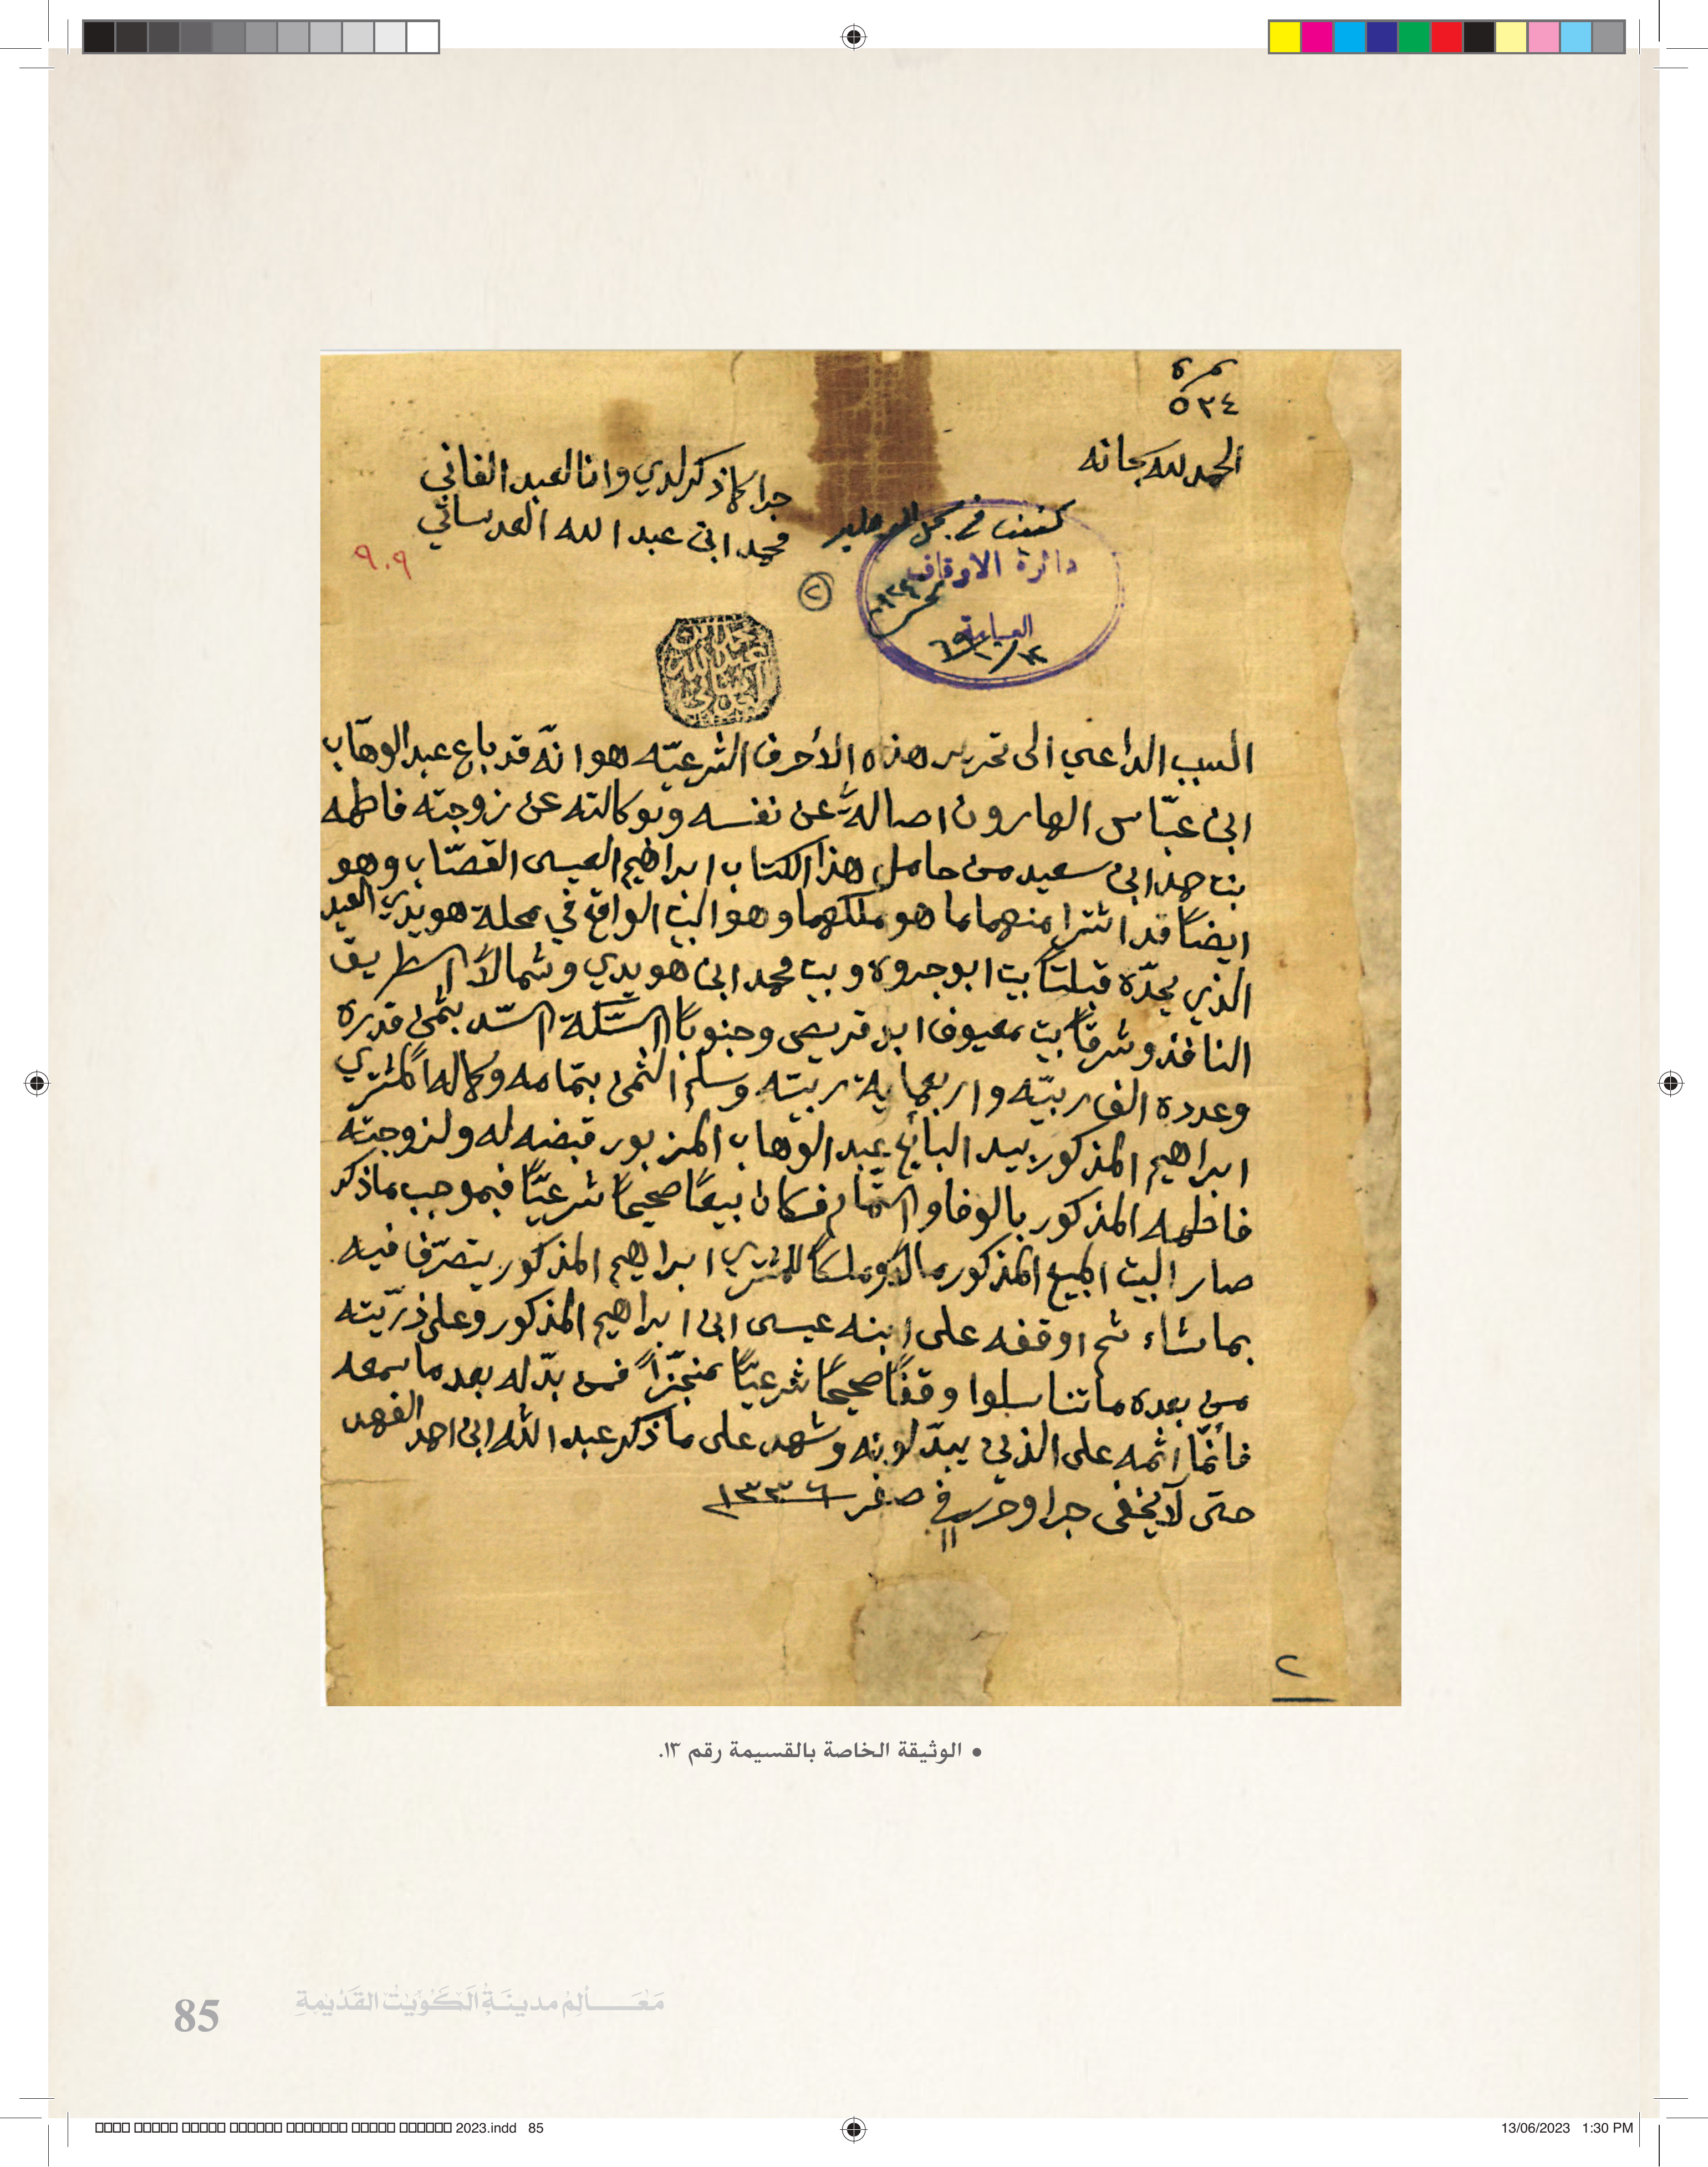 نمرة
٥٣٤
الحمد لله سبحانه
جرا كما ذكر لدي وانا العبد الفاني
محمد ابن عبد الله العدساني
٩٠٩
دائرة الاوقاف
العامة
٢
محمد بن
عبد الله
العدساني
السبب الداعي الى تحرير هذه الأحرف الشرعيّه هو انّه قد باع عبد الوهاب
ابن عبّاس الهارون اصالةً عن نفسه وبوكالته عن زوجته فاطمه
بنت حمد ابن سعيد من حامل هذا الكتاب ابراهيم العيسى القصّاب وهو
ايضاً قد اشترا منهما ما هو ملكهما وهو البيت الواقع في محلة هويدي العيد
الذي يحدّه قبلتاً بيت ابو جروه وبيت محمد ابن هويدي وشمالاً الطريق
النافذ وشرقاً بيت معيوف ابن قريص وجنوباً السّكة السّد بثمن قدره
وعدده الف ربيّه واربعماية ربيّه وسلم الثمن بتمامه وكماله المشتري
ابراهيم المذكور بيد البايع عبد الوهاب المزبور قبضه له ولزوجته
فاطمه المذكور بالوفا والتمام فكان بيعاً صحيحاً شرعيّاً فبموجب ما ذكر
صار البيت المبيع المذكور مالاً وملكاً للمشتري ابراهيم المذكور يتصرّف فيه
بما شاء ثم اوقفه على ابنه عيسى ابن ابراهيم المذكور وعلى ذرّيته
من بعده ما تناسلوا وقفاً صحيحاً شرعيّاً منجزّاً فمن بدّله بعد ما سمعه
فأنمّا اثمه على الذين يبدّلونه وشهد على ما ذكر عبد الله ابن احمد الفهد
حتى لا يخفى جرا وحرر في ١١ صفر ١٣٣٦
٢
• الوثيقة الخاصة بالقسيمة رقم ١٣.
85 مَعَالِمُ مدينَةِ الكُوَيْتِ القَدِيْمَةِ
2023.indd 85
13/06/2023 1:30 PM